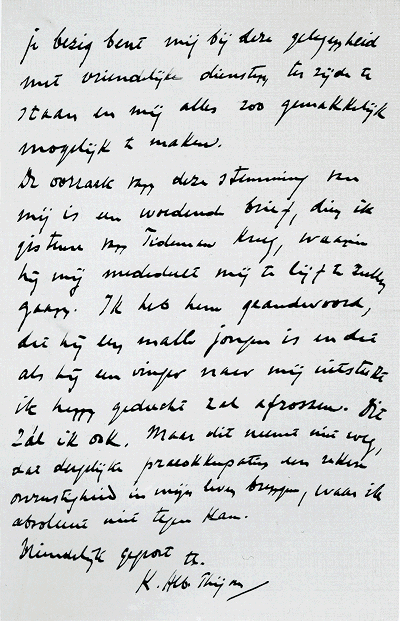 je bezig bent mij bij deze gelegenheid
met vriendelijke diensten ter zijde te
staan en mij alles zoo gemakkelijk
mogelijk te maken.
De oorzaak van deze stemming van
mij is een woedend brief, dien ik
gisteren van Tideman kreeg, waarin
hij mij mededeelt mij te lijf te zullen
gaan. Ik heb hem geandwoord,
dat hij een malle jongen is en dat
als hij een vinger naar mij uitsteekt
ik hem geducht zal afrossen. Dit
zál ik ook. Maar dit neemt niet weg,
dat dergelijke praeokkupaties een zekere
onrustigheid in mijn leven brengen, waar ik
absoluut niet tegen kan.
Vriendelijk gegroet
K. Alb. Thijm